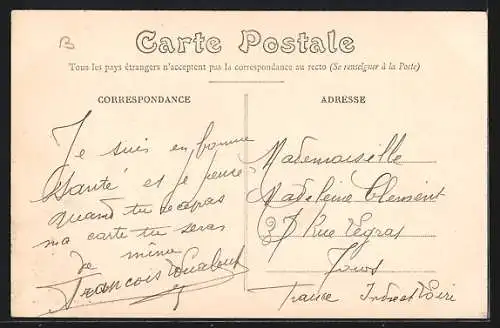 B
Carte Postale
Tous les pays étrangers n'acceptent pas la correspondance au recto (Se renseigner à la Poste)
CORRESPONDANCE
Je suis en bonne
Santé et je pense
quand tu recepas
ma carte tu seras
de même
François
ADRESSE
Mademoiselle
Madeleine Clement
37 Rue Légras
Tours
France Indre et Loire